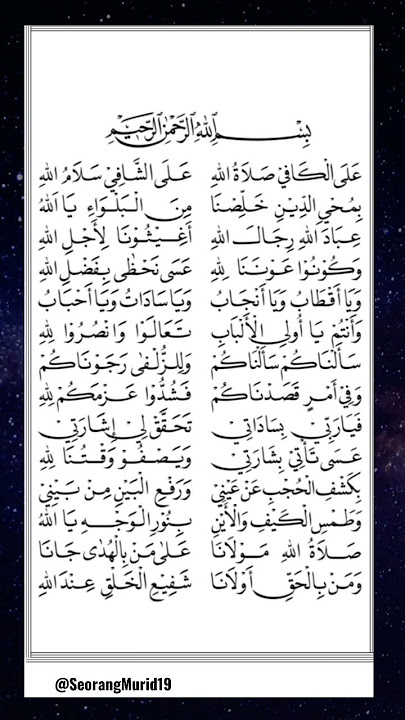 بِسْمِ اللهِ الرَّحْمٰنِ الرَّحِيْمِ
عَلَى الْكَافِيْ صَلَاةُ اللهِ عَلَى الشَّافِيْ سَلَامُ اللهِ
بِمُحْيِ الدِّيْنِ خَلِّصْنَا مِنَ الْبَلْوَاءِ يَا اَللهُ
عِبَادَ اللهِ رِجَالَ اللهِ أَغِيْثُوْنَا لِأَجْلِ اللهِ
وَكُوْنُوْا عَوْنَنَا لِلهِ عَسَى نَحْظٰى بِفَضْلِ اللهِ
وَيَا أَقْطَابُ وَيَا أَنْجَابُ وَيَا سَادَاتُ وَيَا أَحْبَابُ
وَأَنْتُمْ يَا أُولِى الْأَلْبَابِ تَعَالَوْا وَانْصُرُوْا لِلهِ
سَأَلْنَاكُمْ سَأَلْنَاكُمْ وَلِلزُّلْفٰى رَجَوْنَاكُمْ
وَفِيْ أَمْرٍ قَصَدْنَاكُمْ فَشُدُّوْا عَزْمَكُمْ لِلهِ
فَيَارَبِّيْ بِسَادَاتِيْ تَحَقَّقْ لِيْ إِشَارَتِيْ
عَسَى تَأْتِيْ بِشَارَتِيْ وَيَصْفُوْ وَقْتُنَا لِلهِ
بِكَشْفِ الْحُجْبِ عَنْ عَيْنِيْ وَرَفْعِ الْبَيْنِ مِنْ بَيْنِيْ
وَطَمْسِ الْكَيْفِ وَالْأَيْنِ بِنُوْرِ الْوَجْهِ يَا اَللهُ
صَلَاةُ اللهِ مَوْلَانَا عَلٰى مَنْ بِالْهُدٰى جَانَا
وَمَنْ بِالْحَقِّ أَوْلَانَا شَفِيْعِ الْخَلْقِ عِنْدَ اللهِ
@SeorangMurid19